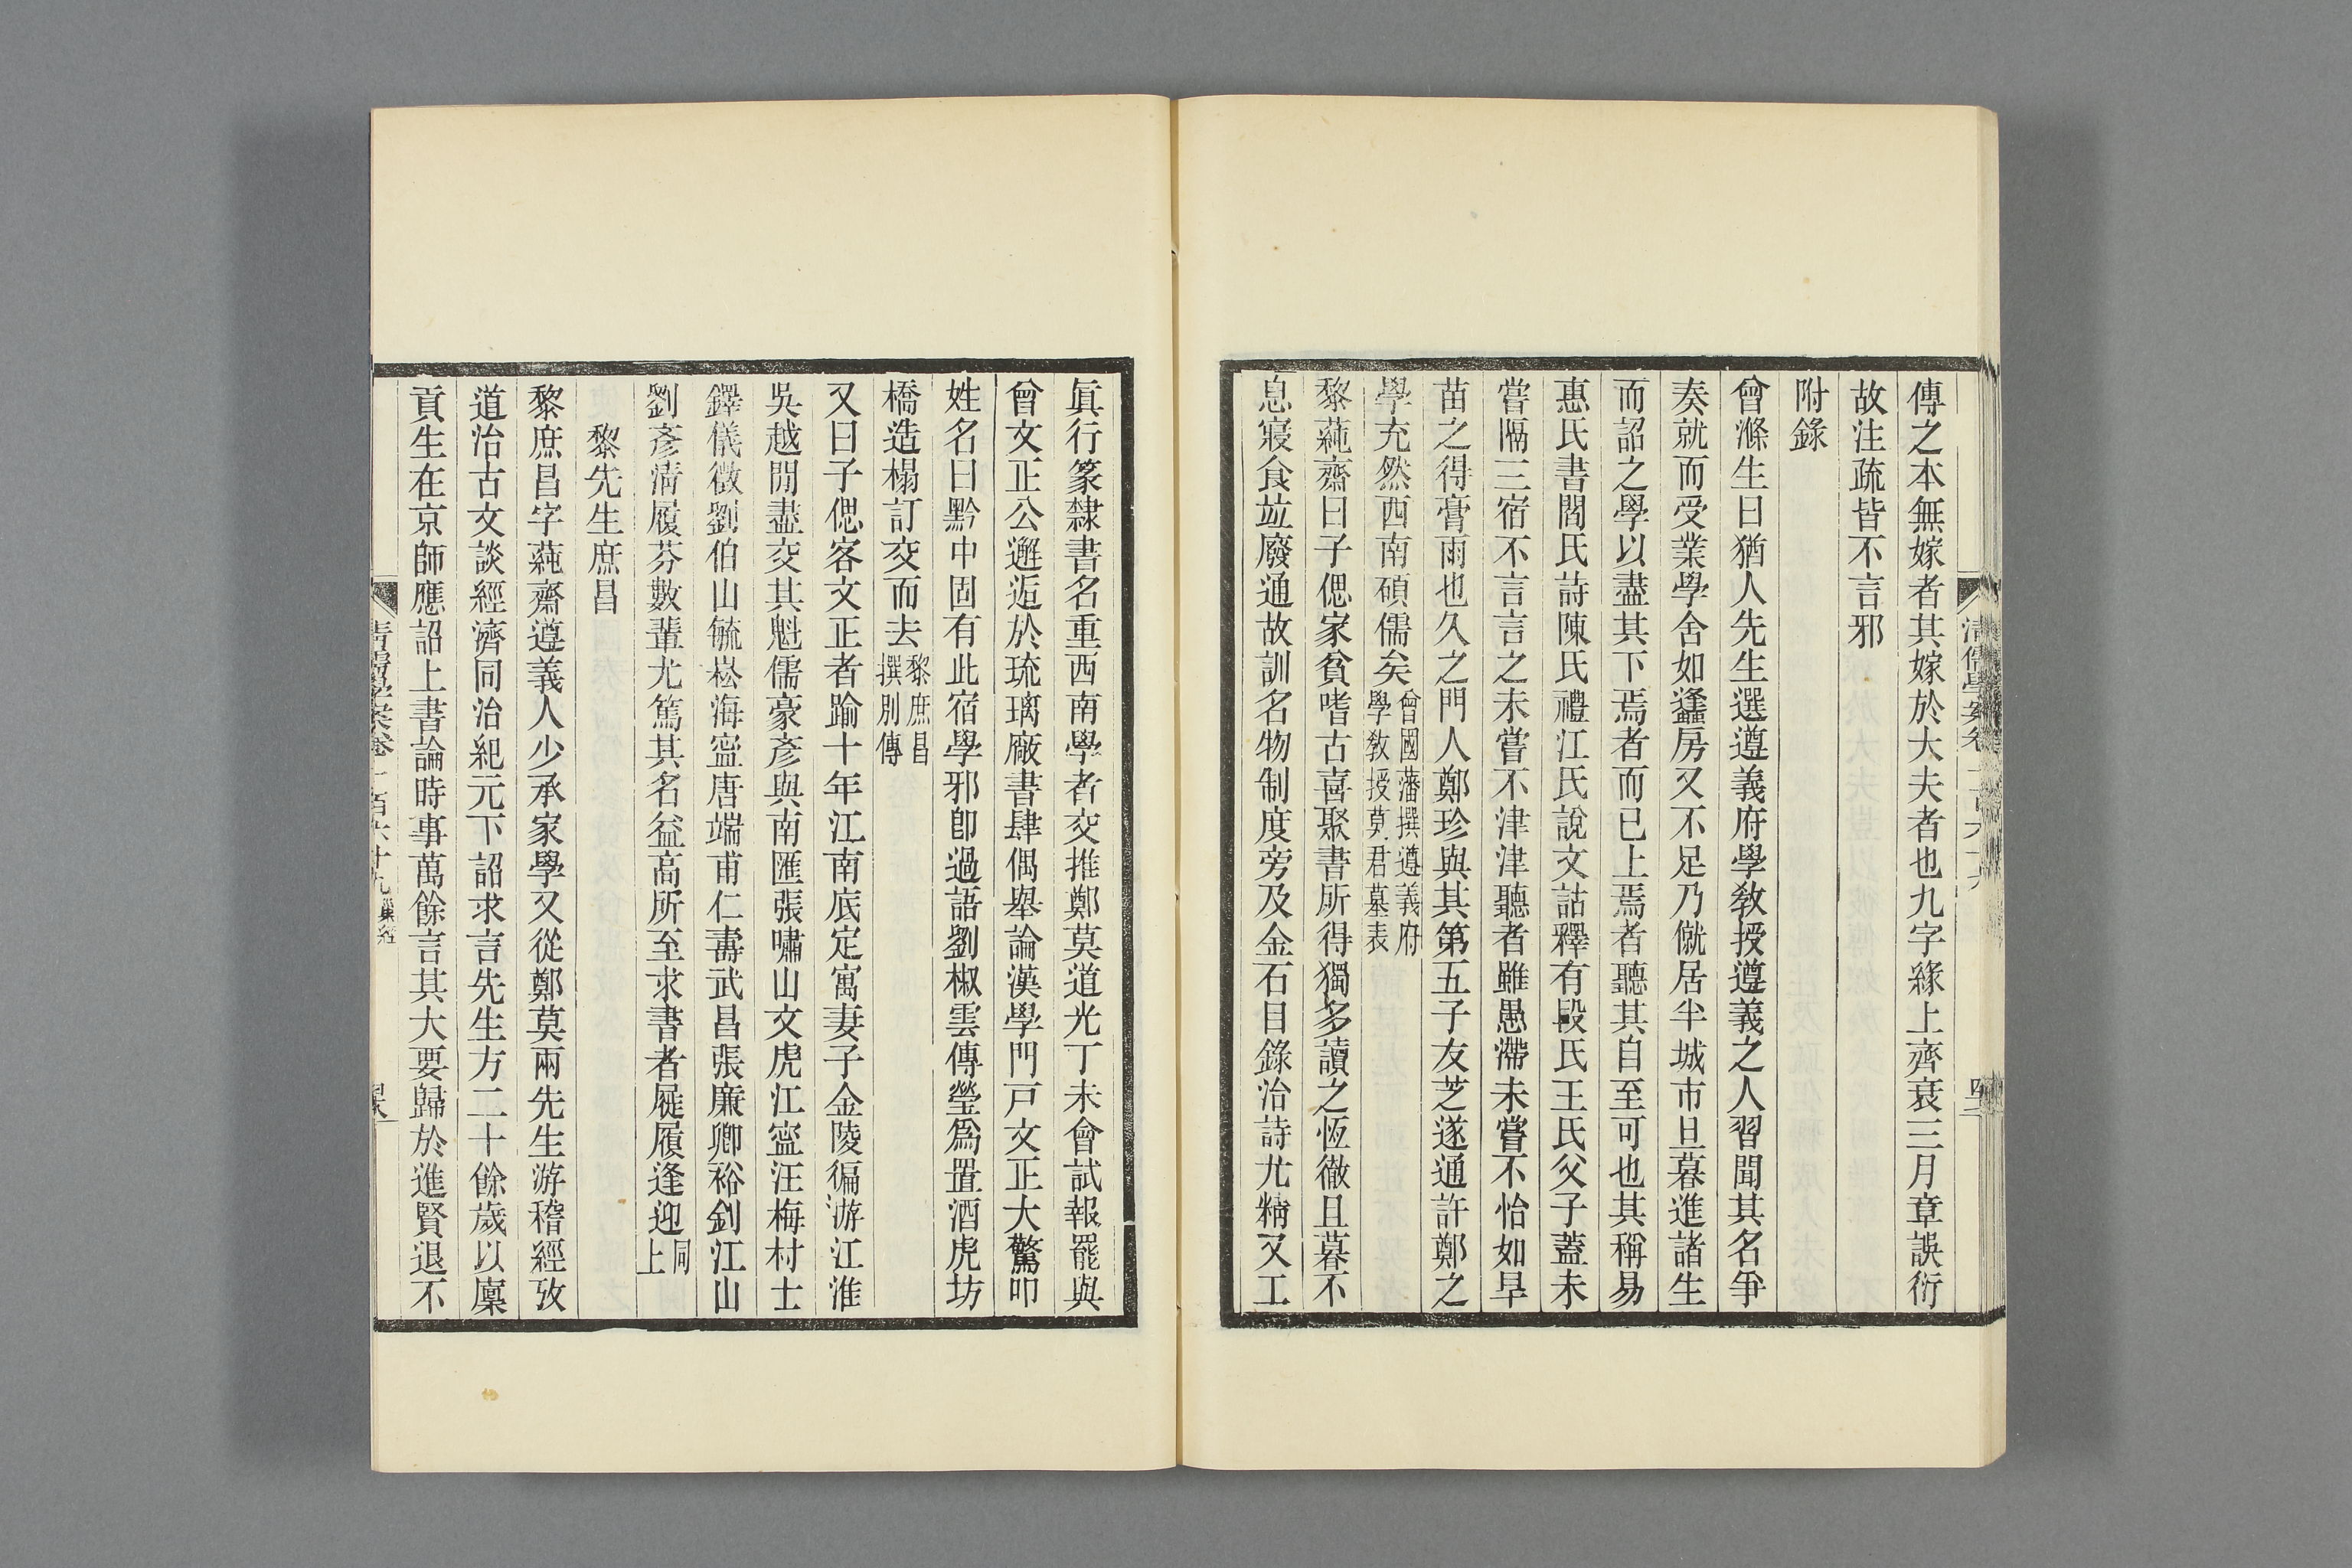 傳之本無嫁者其嫁於大夫者也九字緣上齊衰三月章誤衍
故注疏皆不言邪
附錄
曾滌生曰猶人先生選遵義府學敎授遵義之人習聞其名爭
奏就而受業學舍如蠭房又不足乃僦居半城市旦暮進諸生
而詔之學以盡其下焉者而已上焉者聽其自至可也其稱易
惠氏書閻氏詩陳氏禮江氏說文詁釋有段氏王氏父子蓋未
嘗隔三宿不言言之未嘗不津津聽者雖愚滯未嘗不怡如旱
苗之得膏雨也久之門人鄭珍與其第五子友芝遂通許鄭之
學充然西南碩儒矣曾國藩撰遵義府學敎授莫君墓表
黎蒓齋曰子偲家貧嗜古喜聚書所得獨多讀之恆徹旦暮不
息寢食竝廢通故訓名物制度旁及金石目錄治詩尤精又工
眞行篆隸書名重西南學者交推鄭莫道光丁未會試報罷與
曾文正公邂逅於琉璃廠書肆偶舉論漢學門戸文正大驚叩
姓名曰黔中固有此宿學邪卽過語劉椒雲傳瑩爲置酒虎坊
橋造榻訂交而去黎庶昌撰別傳
又曰子偲客文正者踰十年江南底定寓妻子金陵徧游江淮
吳越閒盡交其魁儒豪彥與南匯張嘯山文虎江寧汪梅村士
鐸儀徵劉伯山毓崧海寧唐端甫仁壽武昌張廉卿裕釗江山
劉彥淸履芬數輩尤篤其名益高所至求書者屣履逢迎同上
黎先生庶昌
黎庶昌字蒓齋遵義人少承家學又從鄭莫兩先生游稽經攷
道治古文談經濟同治紀元下詔求言先生方二十餘歲以廩
貢生在京師應詔上書論時事萬餘言其大要歸於進賢退不